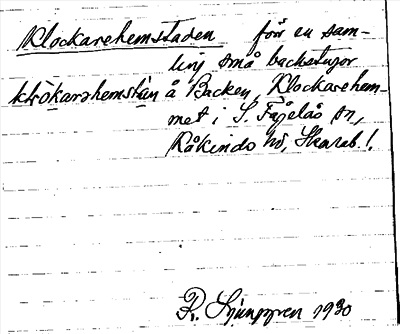 Klockarehemstaden för en sam-
ling små backstugor
klökarehemstan å Backen, Klockarehem-
met i S. Fågelås sn,
Kåkinds hd, Skarab. l.
R. Ljunggren 1930